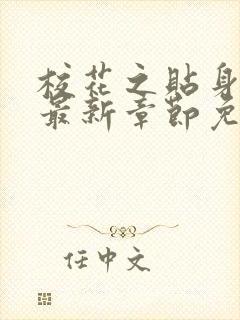 校花之贴身
最新章节免
任中文